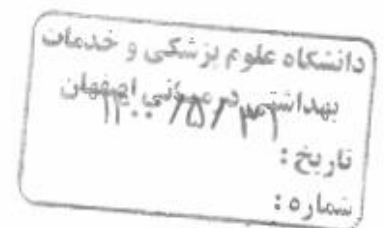 دانشگاه علوم پزشکی و خدمات
بهداشتی درمانی اصفهان
۱۴۰۰/۵/۳۱
تاریخ :
شماره :